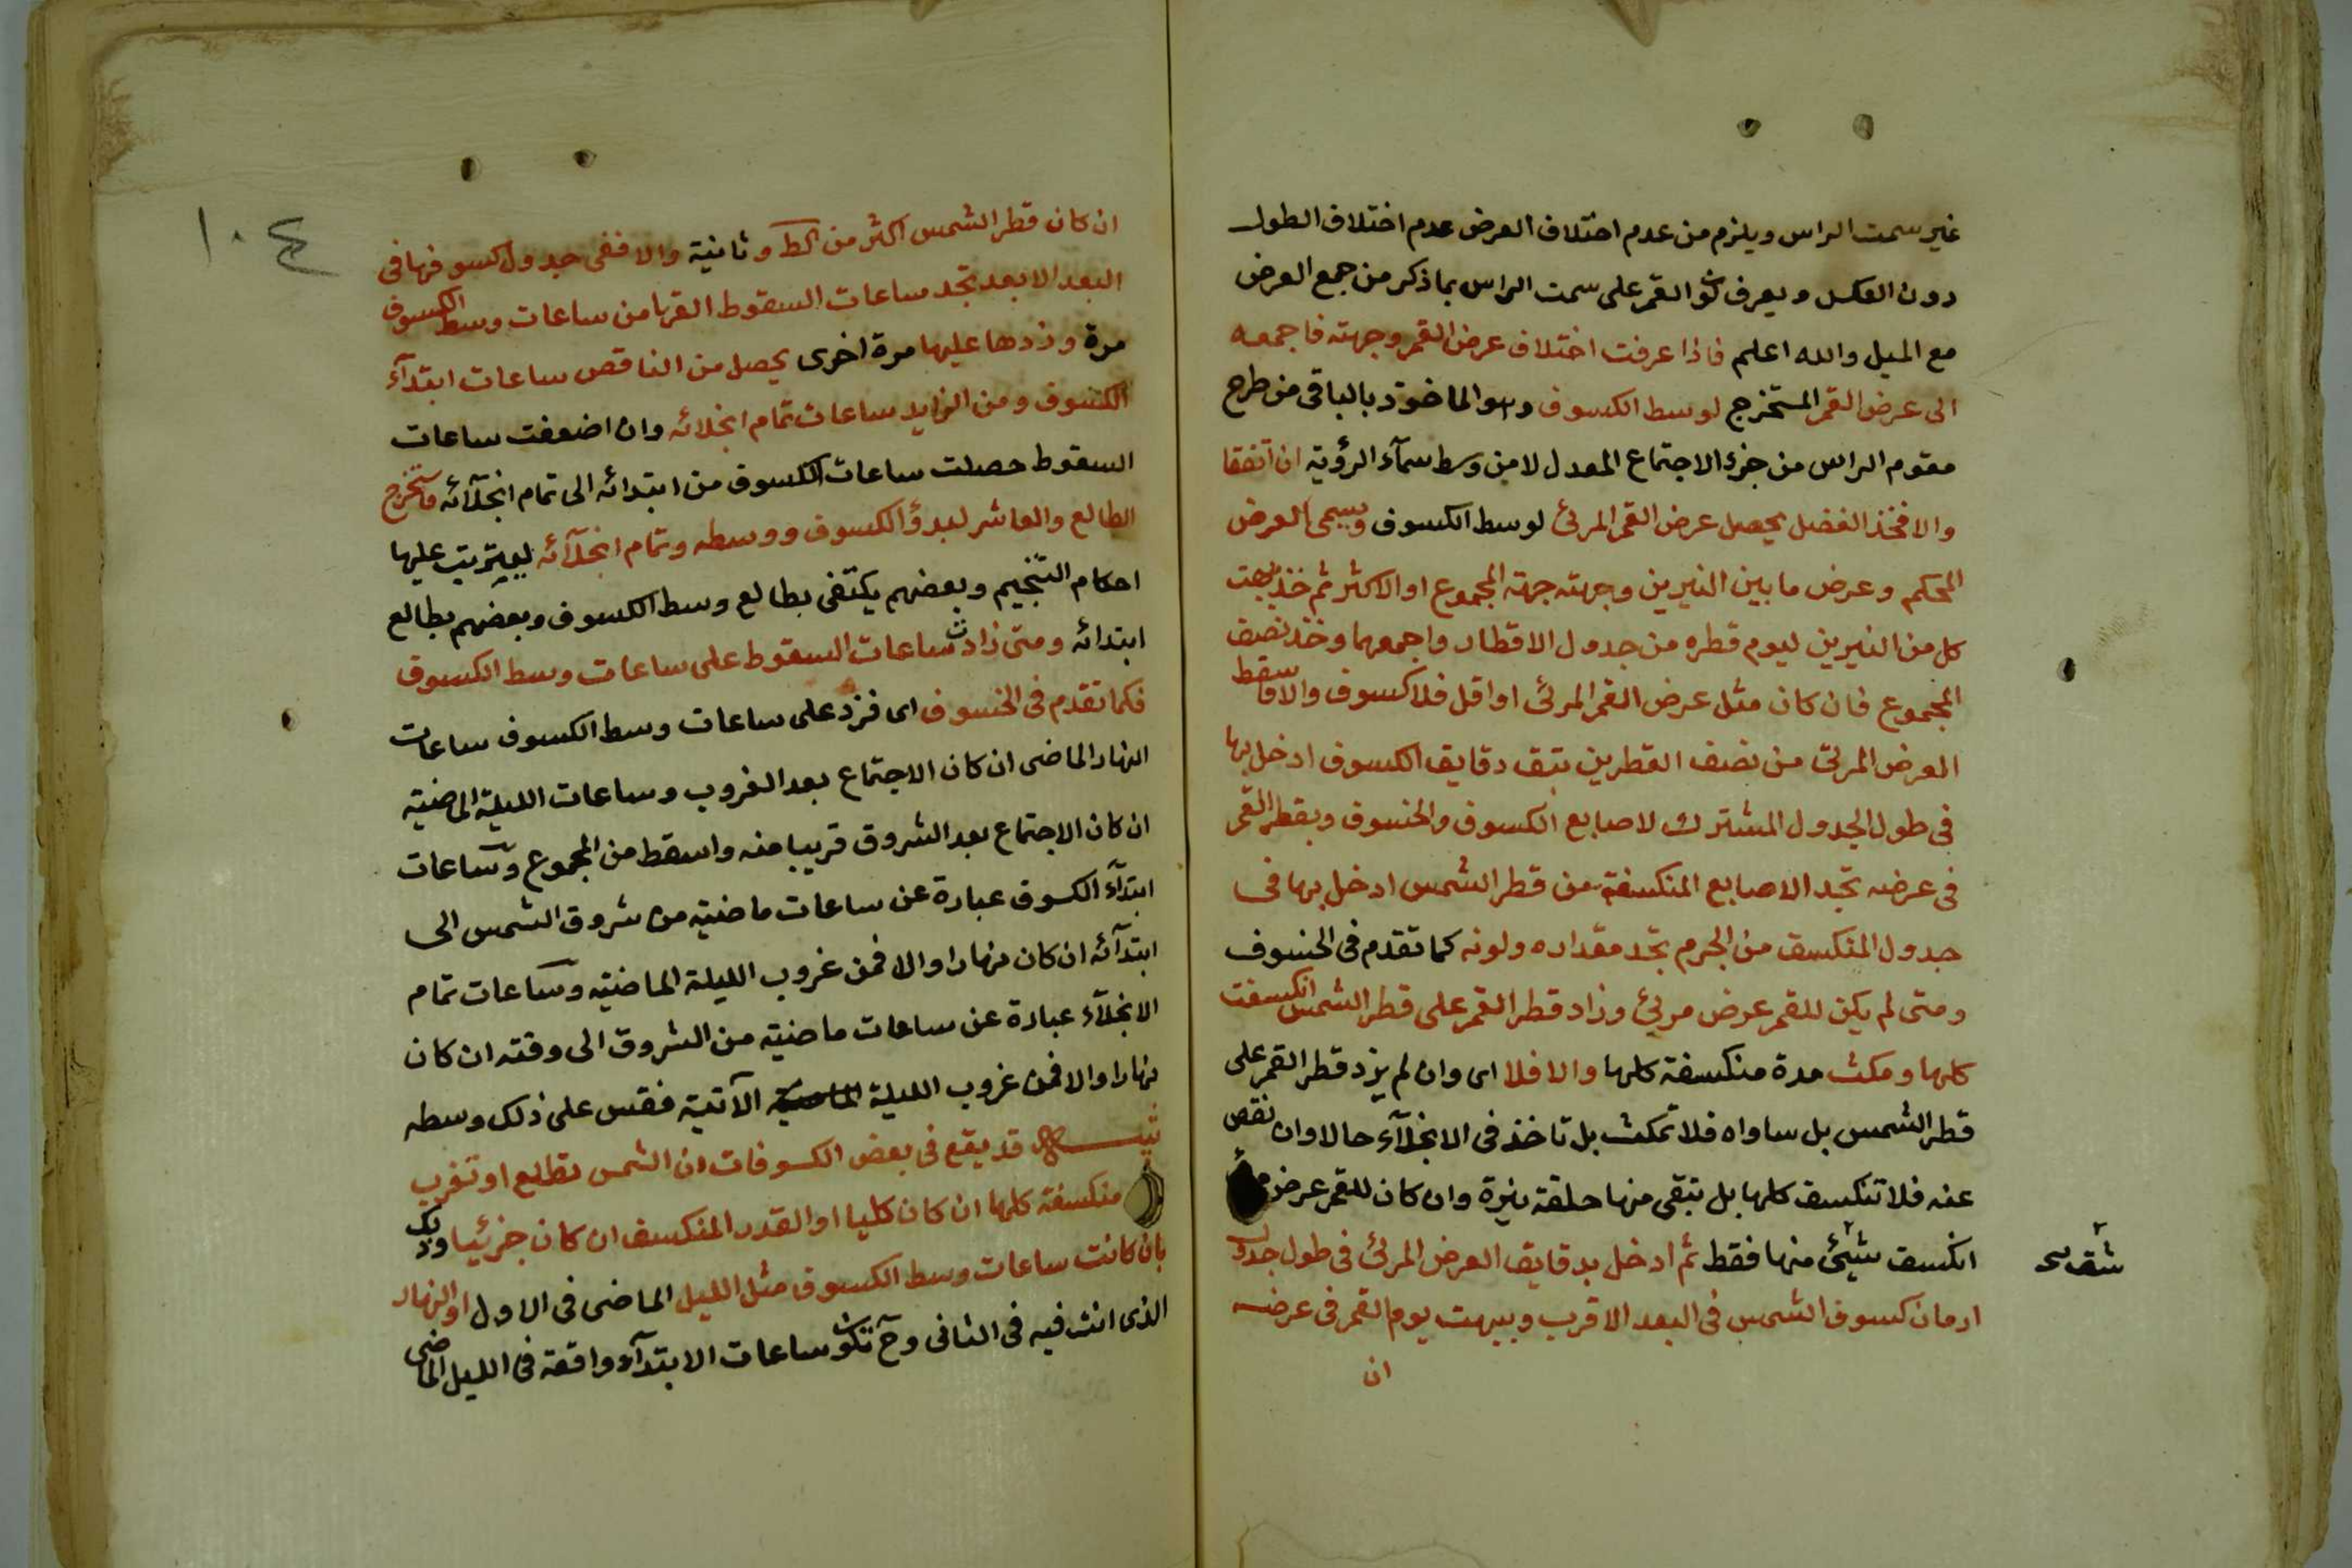 غير سمت الراس ويلزم من عدم اختلاف العرض عدم اختلاف الطول
دون العكس ويعرف كو القمر على سمت الراس بما ذكر من جمع العرض
مع الميل والله اعلم فاذا عرفت اختلاف عرض القمر وجهته فاجمعه
الى عرض القمر المستخرج لوسط الكسوف وهو الماخوذ بالباقى من طرح
مقوم الراس من جزء الاجتماع المعدل لا من وسط سمآء الرؤية ان اتفقا
والا فخذ الفضل يحصل عرض القمر المرئ لوسط الكسوف ويسمى العرض
المحكم وعرض ما بين النيرين وجهته جهة المجموع او الاكثر ثم خذ ببهت
كل من النيرين ليوم قطره من جدول الاقطار واجمعهما وخذ نصيف
المجموع فان كان مثل عرض القمر المرئ او اقل فلا كسوف والا فاسقط
العرض المرئ من نصف القطرين تبق دقايق الكسوف ادخل بها
فى طول الجدول المشترك لاصابع الكسوف والخسوف وبقطر القمر
فى عرضه تجد الاصابع المنكسفة من قطر الشمس ادخل بها فى
جدول المنكسف من الجرم تجد مقداره ولونه كما تقدم فى الخسوف
ومتى لم يكن للقمر عرض مرئ وزاد قطر القمر على قطر الشمس انكسفت
كلها ومكث مدة منكسفة كلها والا فلا اى وان لم يزد قطر القمر على
قطر الشمس بل ساواه فلا تمكث بل تاخذ فى الانجلآء حالا وان نقص
عنه فلا تنكسف كلها بل تبقى منها حلقة نيرة وان كان للقمر عرض
انكسف شيئ منها فقط ثم ادخل بدقايق العرض المرئ فى طول جدول
ازمان كسوف الشمس فى البعد الاقرب وببهت يوم القمر فى عرضه
ان
١٠٤
ان كان قطر الشمس اكثر من لط و ثانية والا ففى جدول كسوفها فى
البعد الابعد تجد ساعات السقوط القها من ساعات وسط الكسوف
مرة وزدها عليها مرة اخرى يحصل من الناقص ساعات ابتدآء
الكسوف ومن الزايد ساعات تمام انجلائه وان اضعفت ساعات
السقوط حصلت ساعات الكسوف من ابتدائه الى تمام انجلآئه فاستخرج
الطالع والعاشر لبدؤ الكسوف ووسطه وتمام انجلآئه ليترتب عليها
احكام التنجيم وبعضهم يكتفى بطالع وسط الكسوف وبعضهم بطالع
ابتدائه ومتى زادت ساعات السقوط على ساعات وسط الكسوف
فكما تقدم فى الخسوف اى فزد على ساعات وسط الكسوف ساعات
النهار الماضى ان كان الاجتماع بعد الغروب وساعات الليلة الماضية
ان كان الاجتماع بعد الشروق قريبا منه واسقط من المجموع وساعات
ابتدآء الكسوف عبارة عن ساعات ماضية من شروق الشمس الى
ابتدآئه ان كان نهارا والا فمن غروب الليلة الماضية وساعات تمام
الانجلآء عبارة عن ساعات ماضية من الشروق الى وقته ان كان
نهارا والا فمن غروب الليلة الماضية الآتية فقس على ذلك وسطه
تنبيه قد يقع فى بعض الكسوفات ان الشمس تطلع او تغرب
منكسفة كلها ان كان كليا او القدر المنكسف ان كان جزئيا وذلك
بان كانت ساعات وسط الكسوف مثل الليل الماضى فى الاول او النهار
الذى انت فيه فى الثانى وح تكو ساعات الابتدآء واقعة فى الليل الماضى